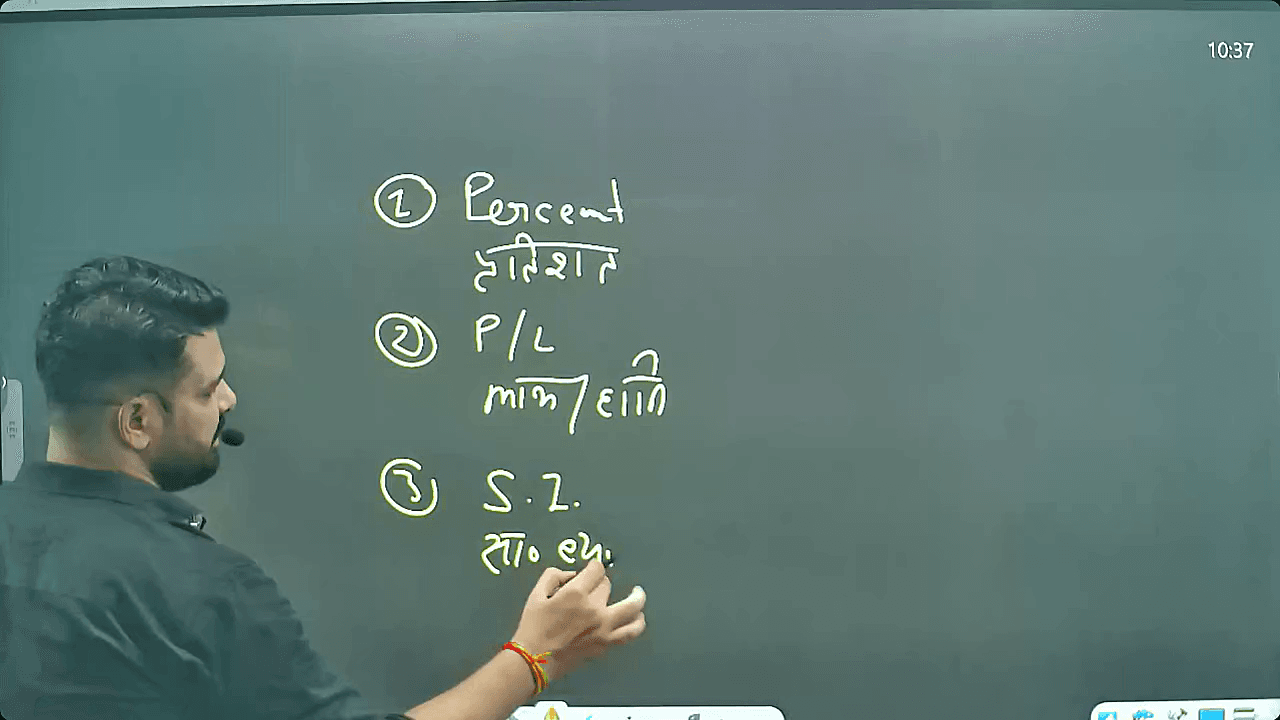 10:37
① Percent
प्रतिशत
② P/L
लाभ/हानि
③ S.I.
सा० ब्या.